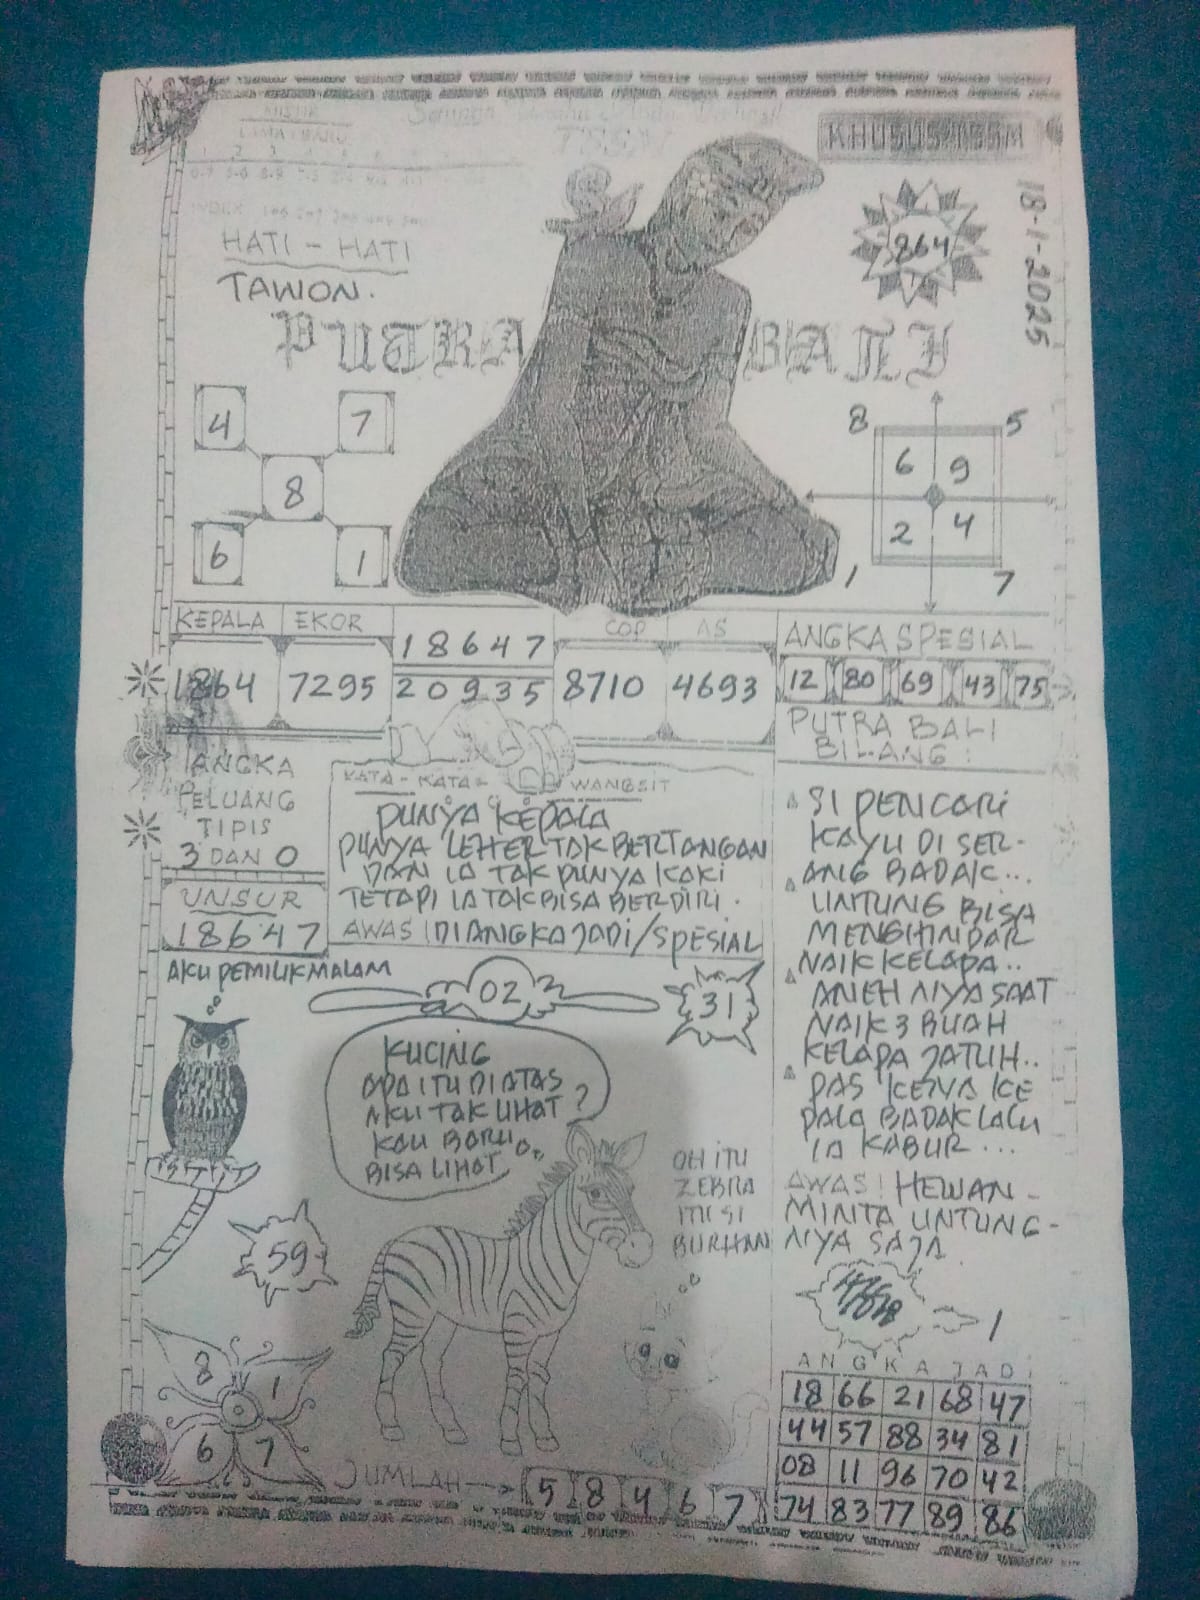 KHUSUS
18-1-2025
864
HATI - HATI
TAWON.
PUTRA BALI
4 7
8
6 1
8 5
6 9
2 4
1 7
KEPALA EKOR
1864 7295
18647
20935
COP AS
8710 4693
ANGKA SPESIAL
12 80 69 43 75
PUTRA BALI
BILANG :
SI PENCARI
KAYU DI SER-
ANG BADAK...
UNTUNG BISA
MENGHINDAR
NAIK KELAPA..
ANEH NIYA SAAT
NAIK 3 BUAH
KELAPA JATUH..
PAS KENA KE
PALA BADAK LALU
IA KABUR...
AWAS! HEWAN-
MINTA UNTUNG-
NIYA SAJA
ANGKA
PELUANG
TIPIS
3 DAN 0
UNSUR
18647
KATA - KATA = WANGSIT
PUNYA KEPALA
PUNYA LEHER TAK BERTANGAN
DAN IA TAK PUNYA KAKI
TETAPI IA TAK BISA BERDIRI.
AWAS! DIANGKA JADI/SPESIAL
AKU PEMILIK MALAM
02
31
KUCING
APA ITU DIATAS
AKU TAK LIHAT ?
KAU BARU
BISA LIHAT
OH ITU
ZEBRA
ITU SI
BURHAN
59
8 1
6 7
JUMLAH 5 8 4 6 7
1
ANGKA JADI
18 66 21 68 47
44 57 88 34 81
08 11 96 70 42
74 83 77 89 86